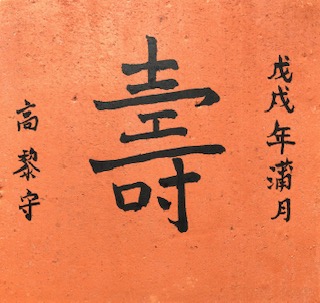 戊戌年蒲月
壽
高黎守